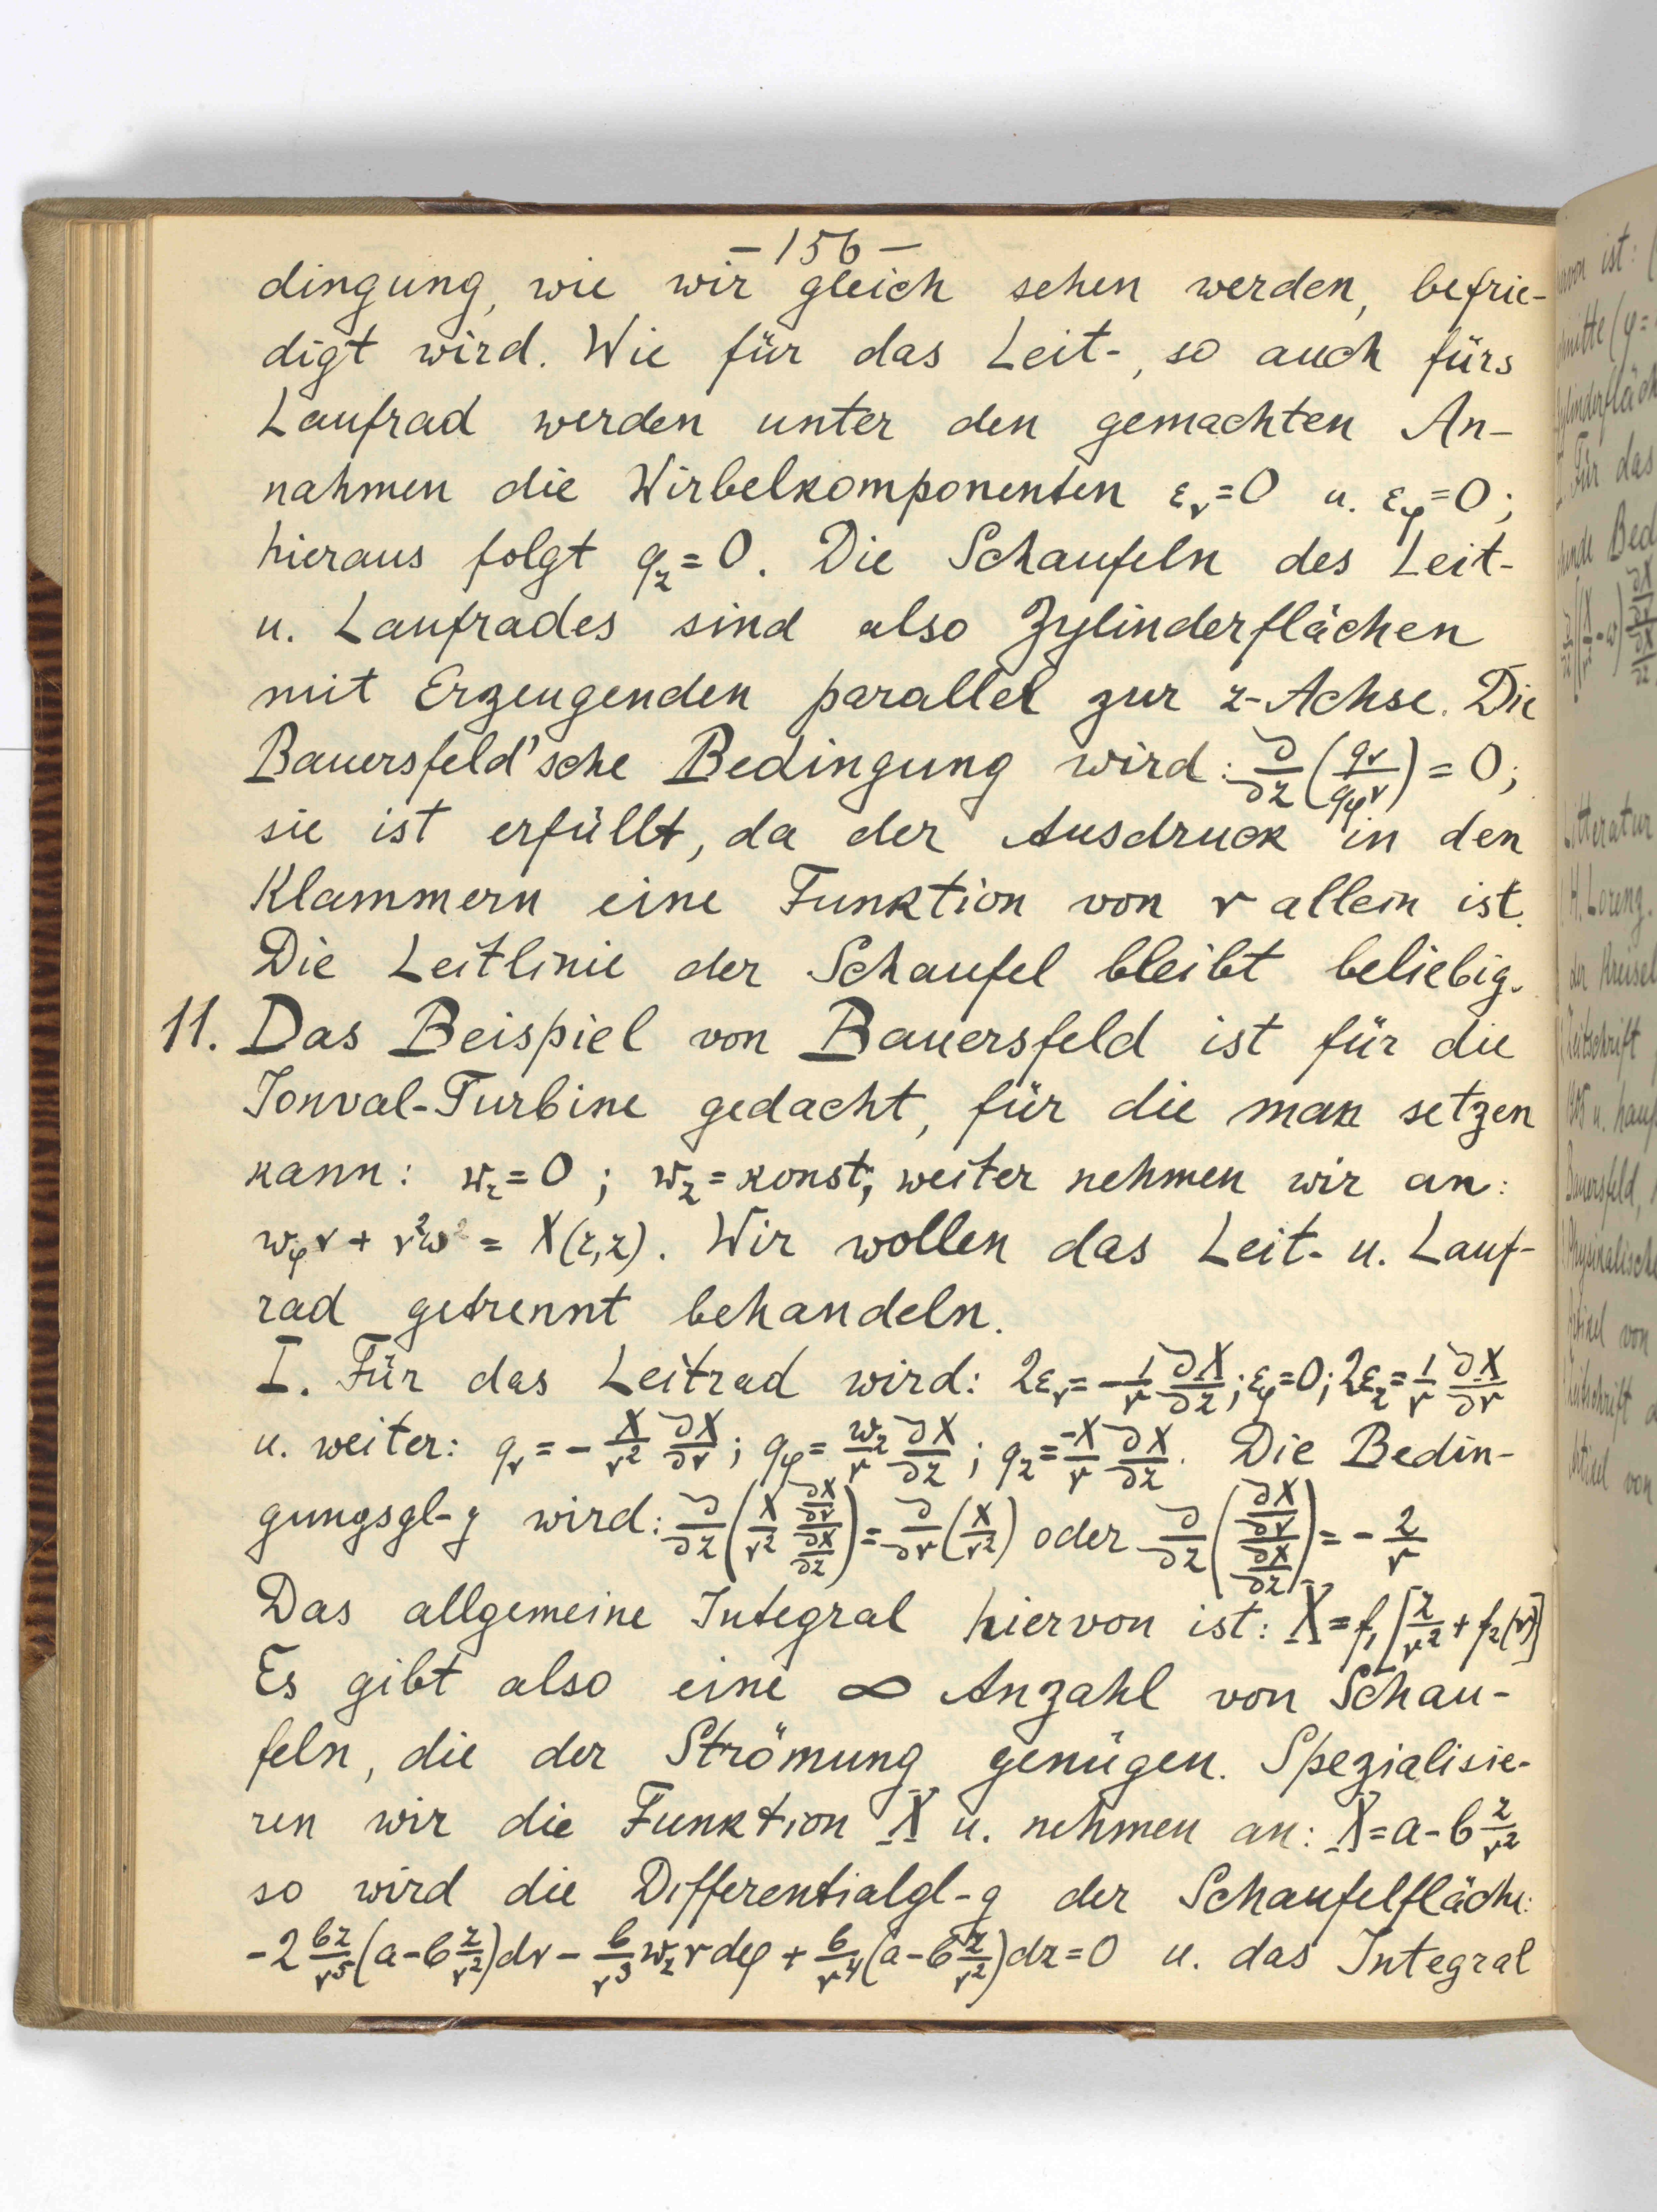 – 156 –
dingung, wie wir gleich sehen werden, befrie-
digt wird. Wie für das Leit-, so auch fürs
Laufrad werden unter den gemachten An-
nahmen die Wirbelkomponenten εᵣ=0 u. ε_φ=0;
hieraus folgt q_z=0. Die Schaufeln des Leit-
u. Laufrades sind also Zylinderflächen
mit Erzeugenden parallel zur z-Achse. Die
Bauersfeld'sche Bedingung wird: ∂/∂z (q_r/(q_φ r)) = 0;
sie ist erfüllt, da der Ausdruck in den
Klammern eine Funktion von r allein ist.
Die Leitlinie der Schaufel bleibt beliebig.
11. Das Beispiel von Bauersfeld ist für die
Jonval-Turbine gedacht, für die man setzen
kann: w_r=0; w_z=konst; weiter nehmen wir an:
w_φ r + r²ω = X(r,z). Wir wollen das Leit- u. Lauf-
rad getrennt behandeln.
I. Für das Leitrad wird: 2ε_r = -1/r ∂X/∂z; ε_φ=0; 2ε_z = 1/r ∂X/∂r
u. weiter: q_r = - X/r² ∂X/∂r; q_φ = w_z/r ∂X/∂z; q_z = -X/r ∂X/∂z. Die Bedin-
gungsgl-g wird: ∂/∂z (X/r² (∂X/∂r)/(∂X/∂z)) = ∂/∂r (X/r²) oder ∂/∂z ((∂X/∂r)/(∂X/∂z)) = - 2/r
Das allgemeine Integral hiervon ist: X = f₁[z/r² + f₂(r)]
Es gibt also eine ∞ Anzahl von Schau-
feln, die der Strömung genügen. Spezialisie-
ren wir die Funktion X u. nehmen an: X = a - b z/r²
so wird die Differentialgl-g der Schaufelfläche:
-2 bz/r⁵ (a - b z/r²)dr - b/r³ w_z r dφ + b/r⁴ (a - b z/r²)dz = 0 u. das Integral